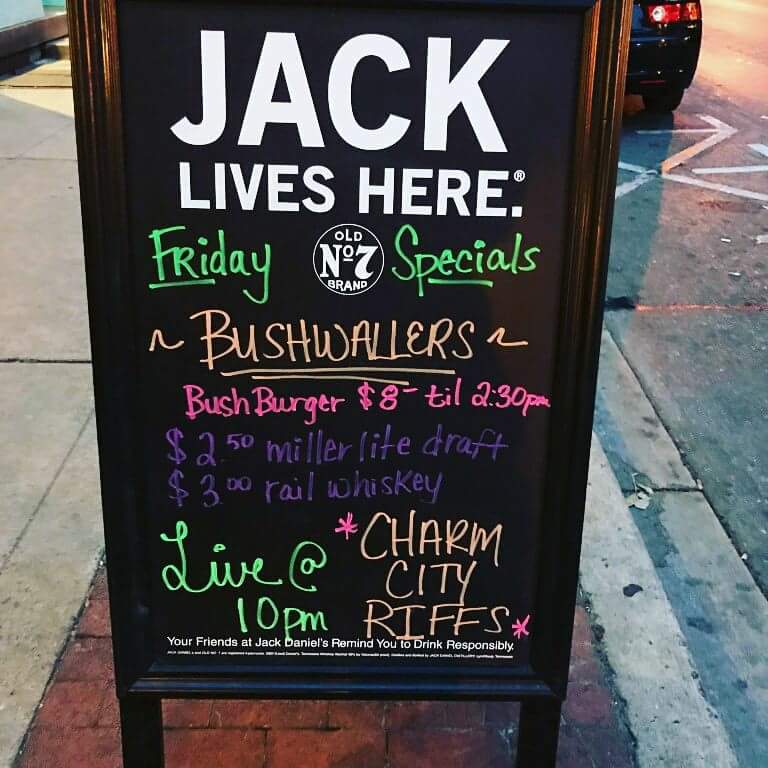 JACK
LIVES HERE.®
Friday OLD Nº7 BRAND Specials
~ BUSHWALLERS ~
Bush Burger $8- til 2:30pm
$2.50 miller lite draft
$3.00 rail whiskey
Live @ 10pm
*CHARM
CITY
RIFFS*
Your Friends at Jack Daniel's Remind You to Drink Responsibly.